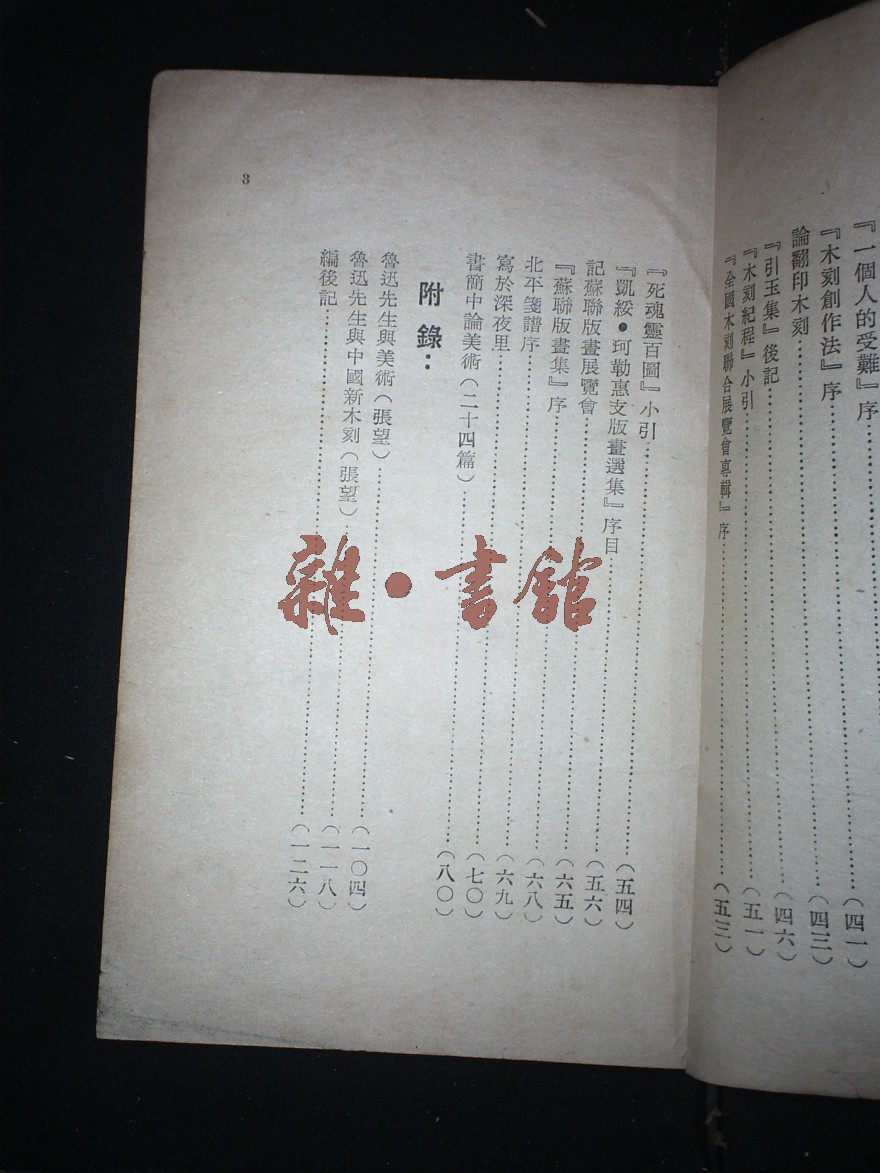 『一個人的受難』序
『木刻創作法』序……(四一)
論翻印木刻……(四三)
『引玉集』後記……(四六)
『木刻紀程』小引……(五一)
『全國木刻聯合展覽會專輯』序……(五三)
『死魂靈百圖』小引……(五四)
『凱綏●珂勒惠支版畫選集』序目……(五六)
記蘇聯版畫展覽會……(六五)
『蘇聯版畫集』序……(六八)
北平箋譜序……(六九)
寫於深夜里……(七〇)
書簡中論美術(二十四篇)……(八〇)
附錄：
魯迅先生與美術(張望)……(一〇四)
魯迅先生與中國新木刻(張望)……(一一八)
編後記……(一二六)
3
雜●書館